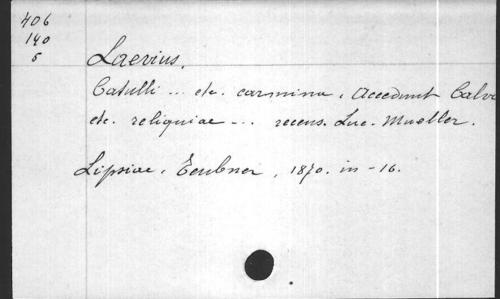 406
140
5
Laevius.
Catulli ... etc. carmina. Accedunt Calvi
etc. reliquiae ... recens. Luc. Mueller.
Lipsiae, Teubner, 1870. in-16.